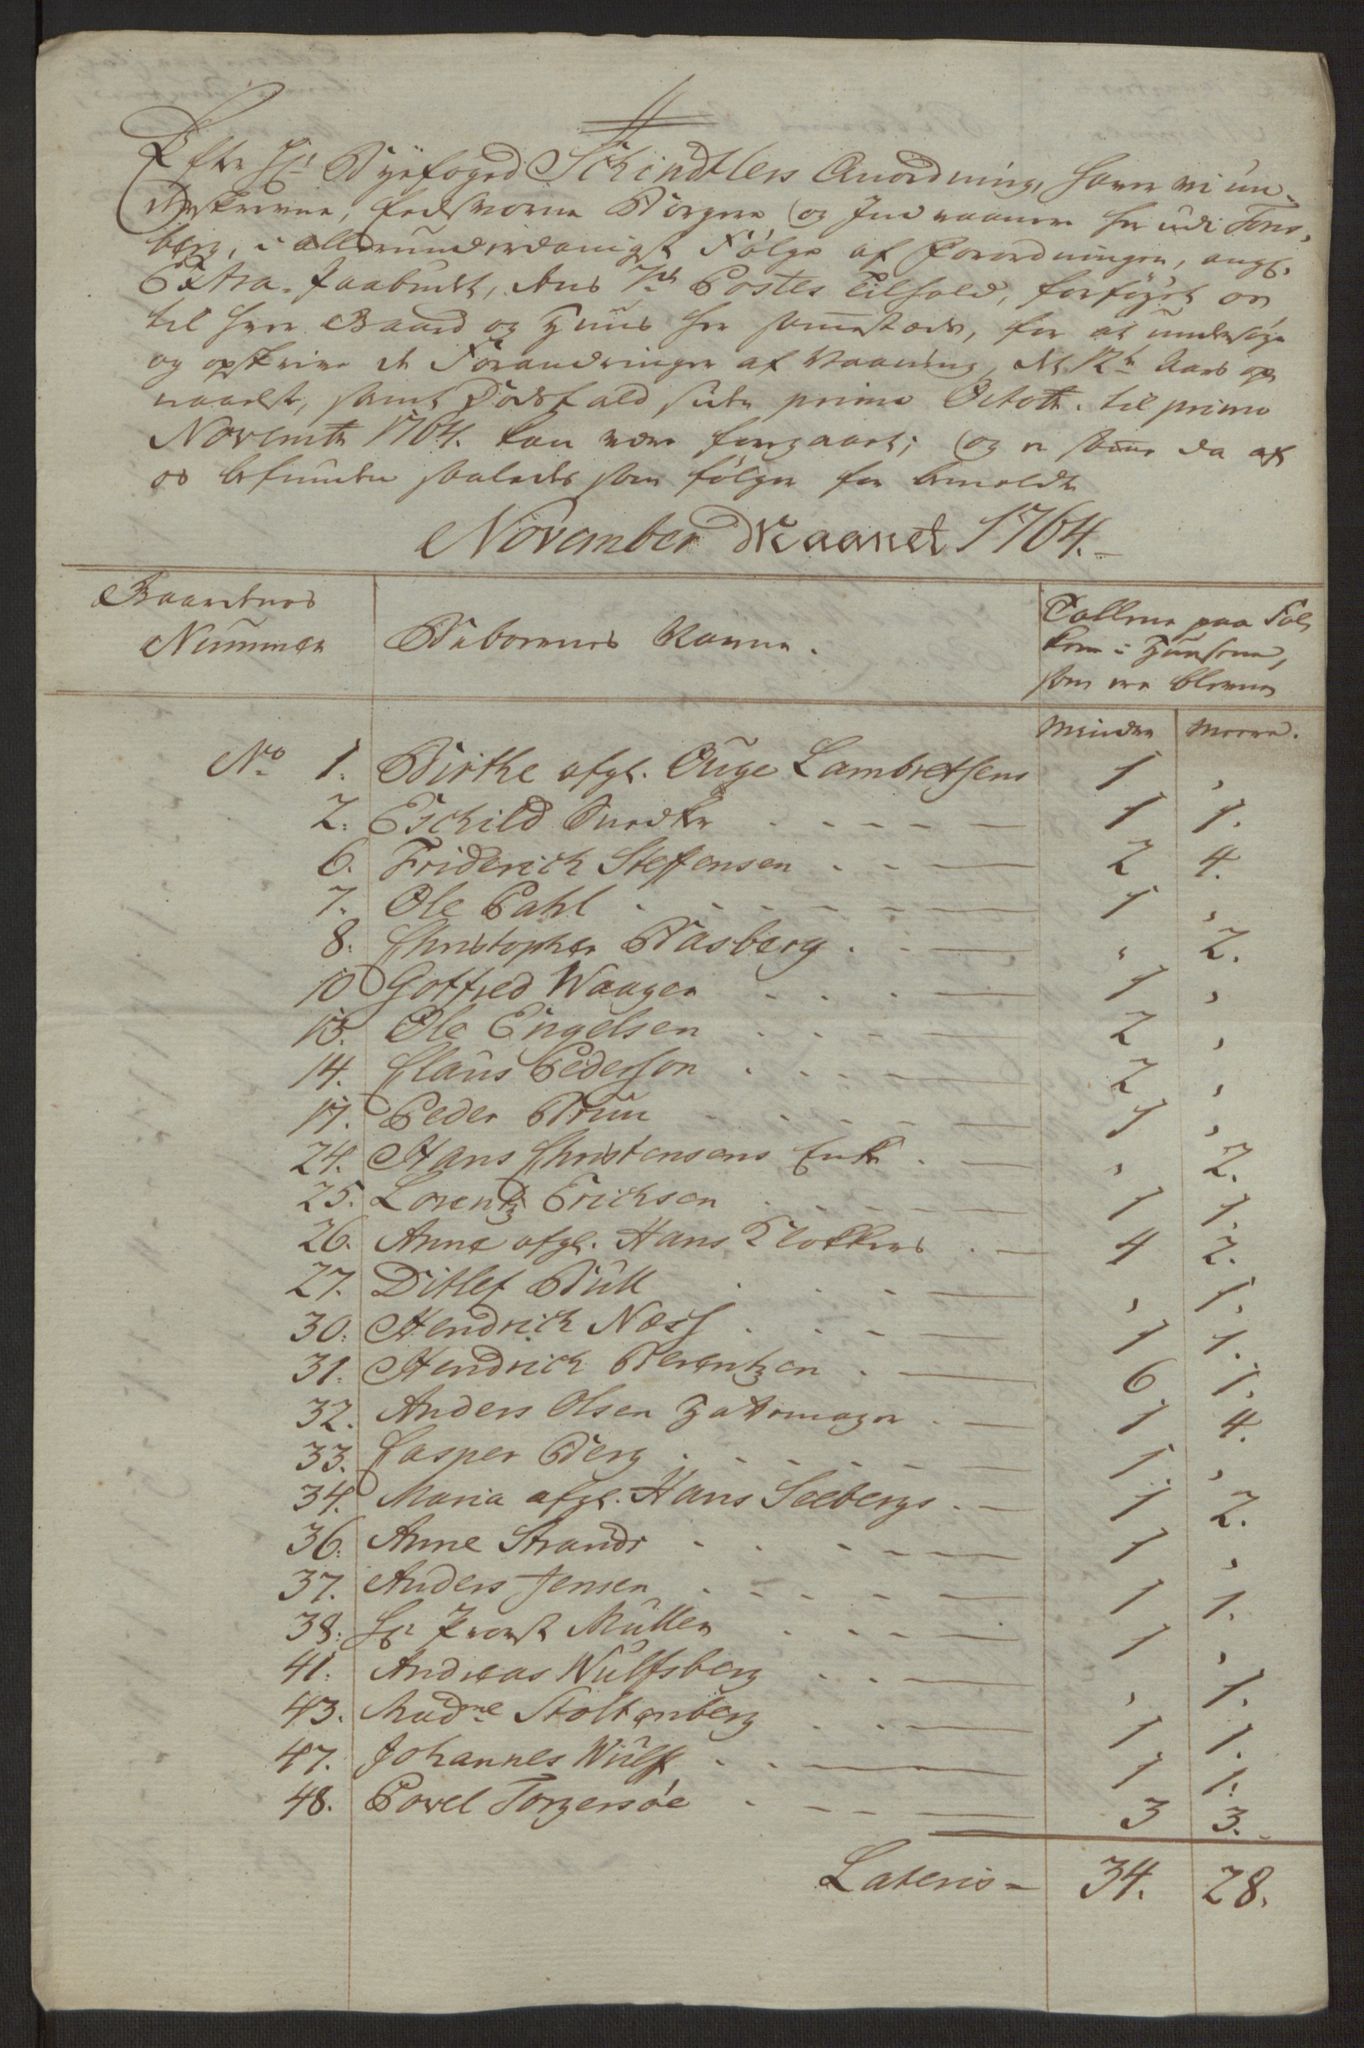 Efter Hr Byefoged Schindtlers Anordning, have vi un-
derskrevne, Eedsvorne Borgere og Indvaanere her udi Tøns-
berg, i allerunderdanigst Følge af Forordningen, ang:
Extra-Paabudet, dens 7de Postes Tilhold, forføyet os
til hver Gaard og Huus her sammesteds, for at undersøge
og opskrive de Forandringer af Vaaning, det 12te Aars op
naaelse, samt Dødsfald siden primo Octobr. til primo
Novembr 1764. kan være foregaaet; og er samme da af
os befunden saaledes som følger for bemeldte
November Maanet 1764.
Gaardenes Nummer
Beboernes Navne.
Tallene paa Fol-
kene i Huusene,
som ere blevne
Mindre Meere.
No. 1. Birthe afgl. Ouge Lambretsens 1 ,
2. Eschild Snedker 1 1.
6. Friderich Steffensen 2 4.
7. Ole Pahl 1 ,
8. Christopher Basberg 2.
10 Gotfred Waager 1 ,
13. Ole Engelsen 2 ,
14. Claus Pedersson 2 ,
17. Peder Bruu 1 ,
24. Hans Christensens Enke , 2.
25. Lorentz Erichsen 1 1.
26. Anne afgl. Hans Klokkers 4 2.
27. Ditlef Bull , 1.
30. Hendrich Næss 1 1.
31. Hendrich Berentzen 6 1.
32. Anders Olsen Hattemager 1 4.
33. Casper Berg 1 ,
34. Maria afgl. Hans Seebergs 1 2.
36. Anne Strandr 1 ,
37. Anders Jensen 1 1.
38. Hr Provst Müller 1 ,
41. Andreas Wulfsberg , 1.
43. Madme Stoltenberg 1 1.
47. Johannes Wulf 1 1.
48. Povel Torgersøe 3 3.
Lateris 34. 28.